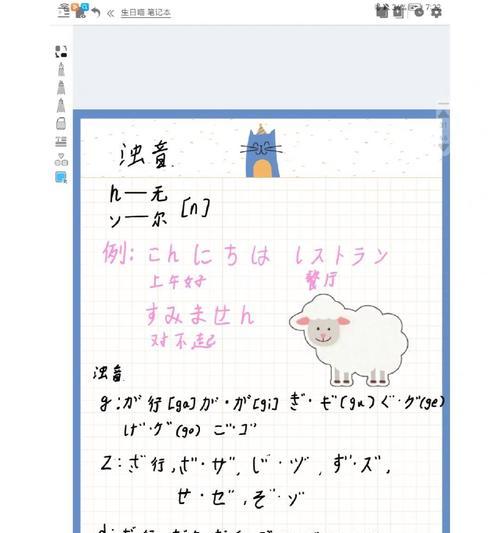 生日喵 笔记本
7:22
浊音
ん — 无
ン — 尔 [n]
例: こんにちは レストラン
上午好 餐厅
すみません
对不起
浊音
g: が 行 [ga] が・が [gi] ぎ・ギ (gu) ぐ・グ (ge)
げ・ゲ (go) ご・ゴ
z: ざ 行, ざ・ザ, じ・ヅ, ず・ズ,
ぜ・ゼ, ぞ・ゾ